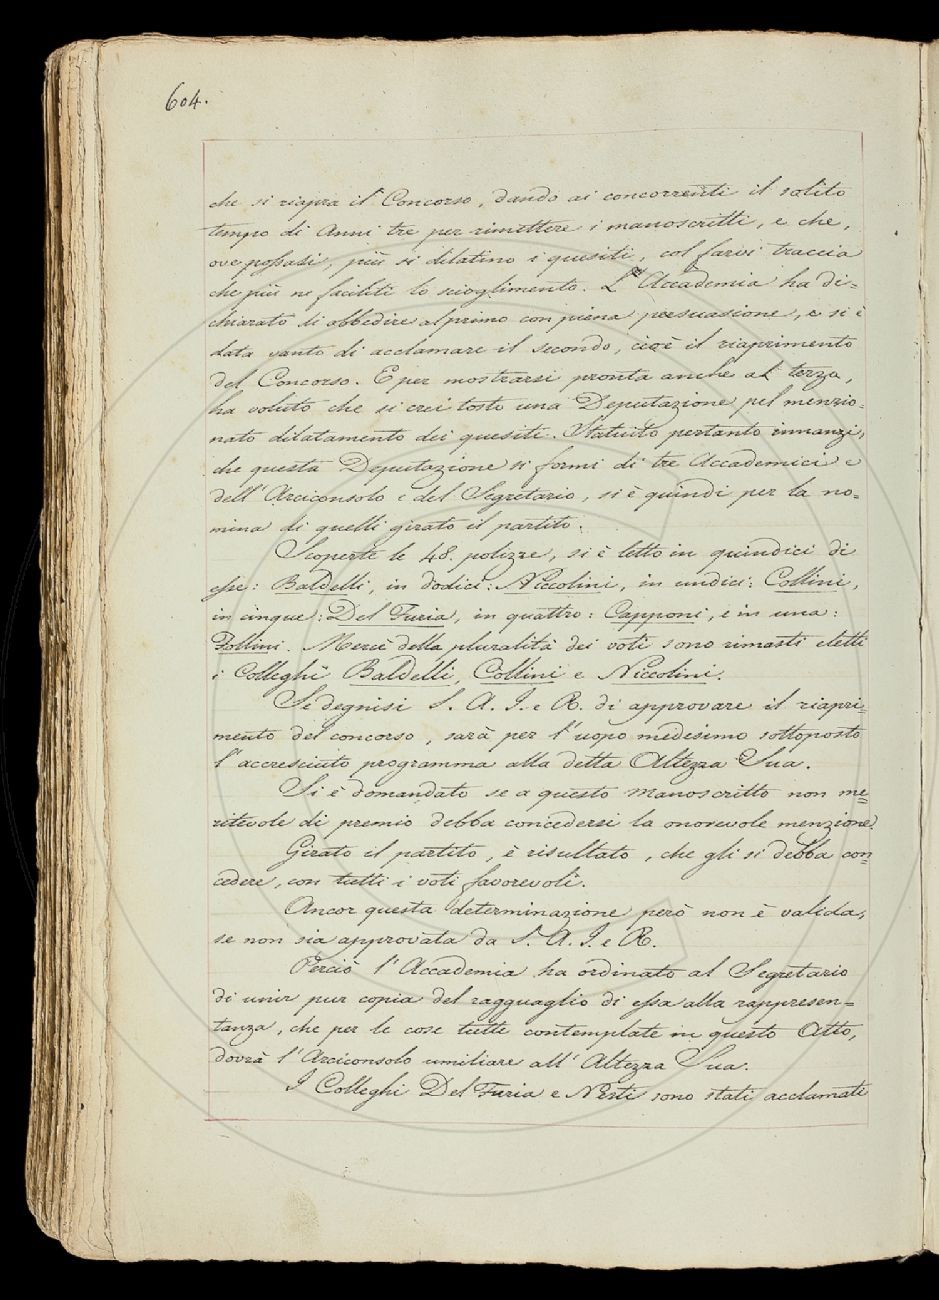 604.
che si riapra il Concorso, dando ai concorrenti il solito
tempo di Anni tre per rimettere i manoscritti, e che,
ove possasi, più si dilatino i quesiti, col farvi traccia
che più ne faciliti lo scioglimento. L'Accademia ha di=
chiarato di obbedire al primo con piena persuasione, e si è
data vanto di acclamare il secondo, cioè il riaprimento
del Concorso. E per mostrarsi pronta anche al terzo,
ha voluto che si crei tosto una Deputazione pel menzio=
nato dilatamento dei quesiti. Statuito pertanto innanzi,
che questa Deputazione si formi di tre Accademici e
dell'Arciconsolo e del Segretario, si è quindi per la no=
mina di quelli girato il partito.
Scoperte le 48. polizze, si è letto in quindici di
esse: Baldelli, in dodici: Niccolini, in undici: Collini,
in cinque: Del Furia, in quattro: Capponi, e in una:
Follini. Mercè della pluralità dei voti sono rimasti eletti
i Colleghi Baldelli, Collini e Niccolini.
Se degnisi S. A. I. e R. di approvare il riapri=
mento del concorso, sarà per l'uopo medesimo sottoposto
l'accresciuto programma alla detta Altezza Sua.
Si è domandato se a questo manoscritto non me=
ritevole di premio debba concedersi la onorevole menzione.
Girato il partito, è risultato, che gli si debba con=
cedere, con tutti i voti favorevoli.
Ancor questa determinazione però non è valida,
se non sia approvata da S. A. I. e R.
Perciò l'Accademia ha ordinato al Segretario
di unir pur copia del ragguaglio di essa alla rappresen=
tanza, che per le cose tutte contemplate in questo Atto,
dovrà l'Arciconsolo umiliare all'Altezza Sua.
I Colleghi Del Furia e Nesti sono stati acclamati